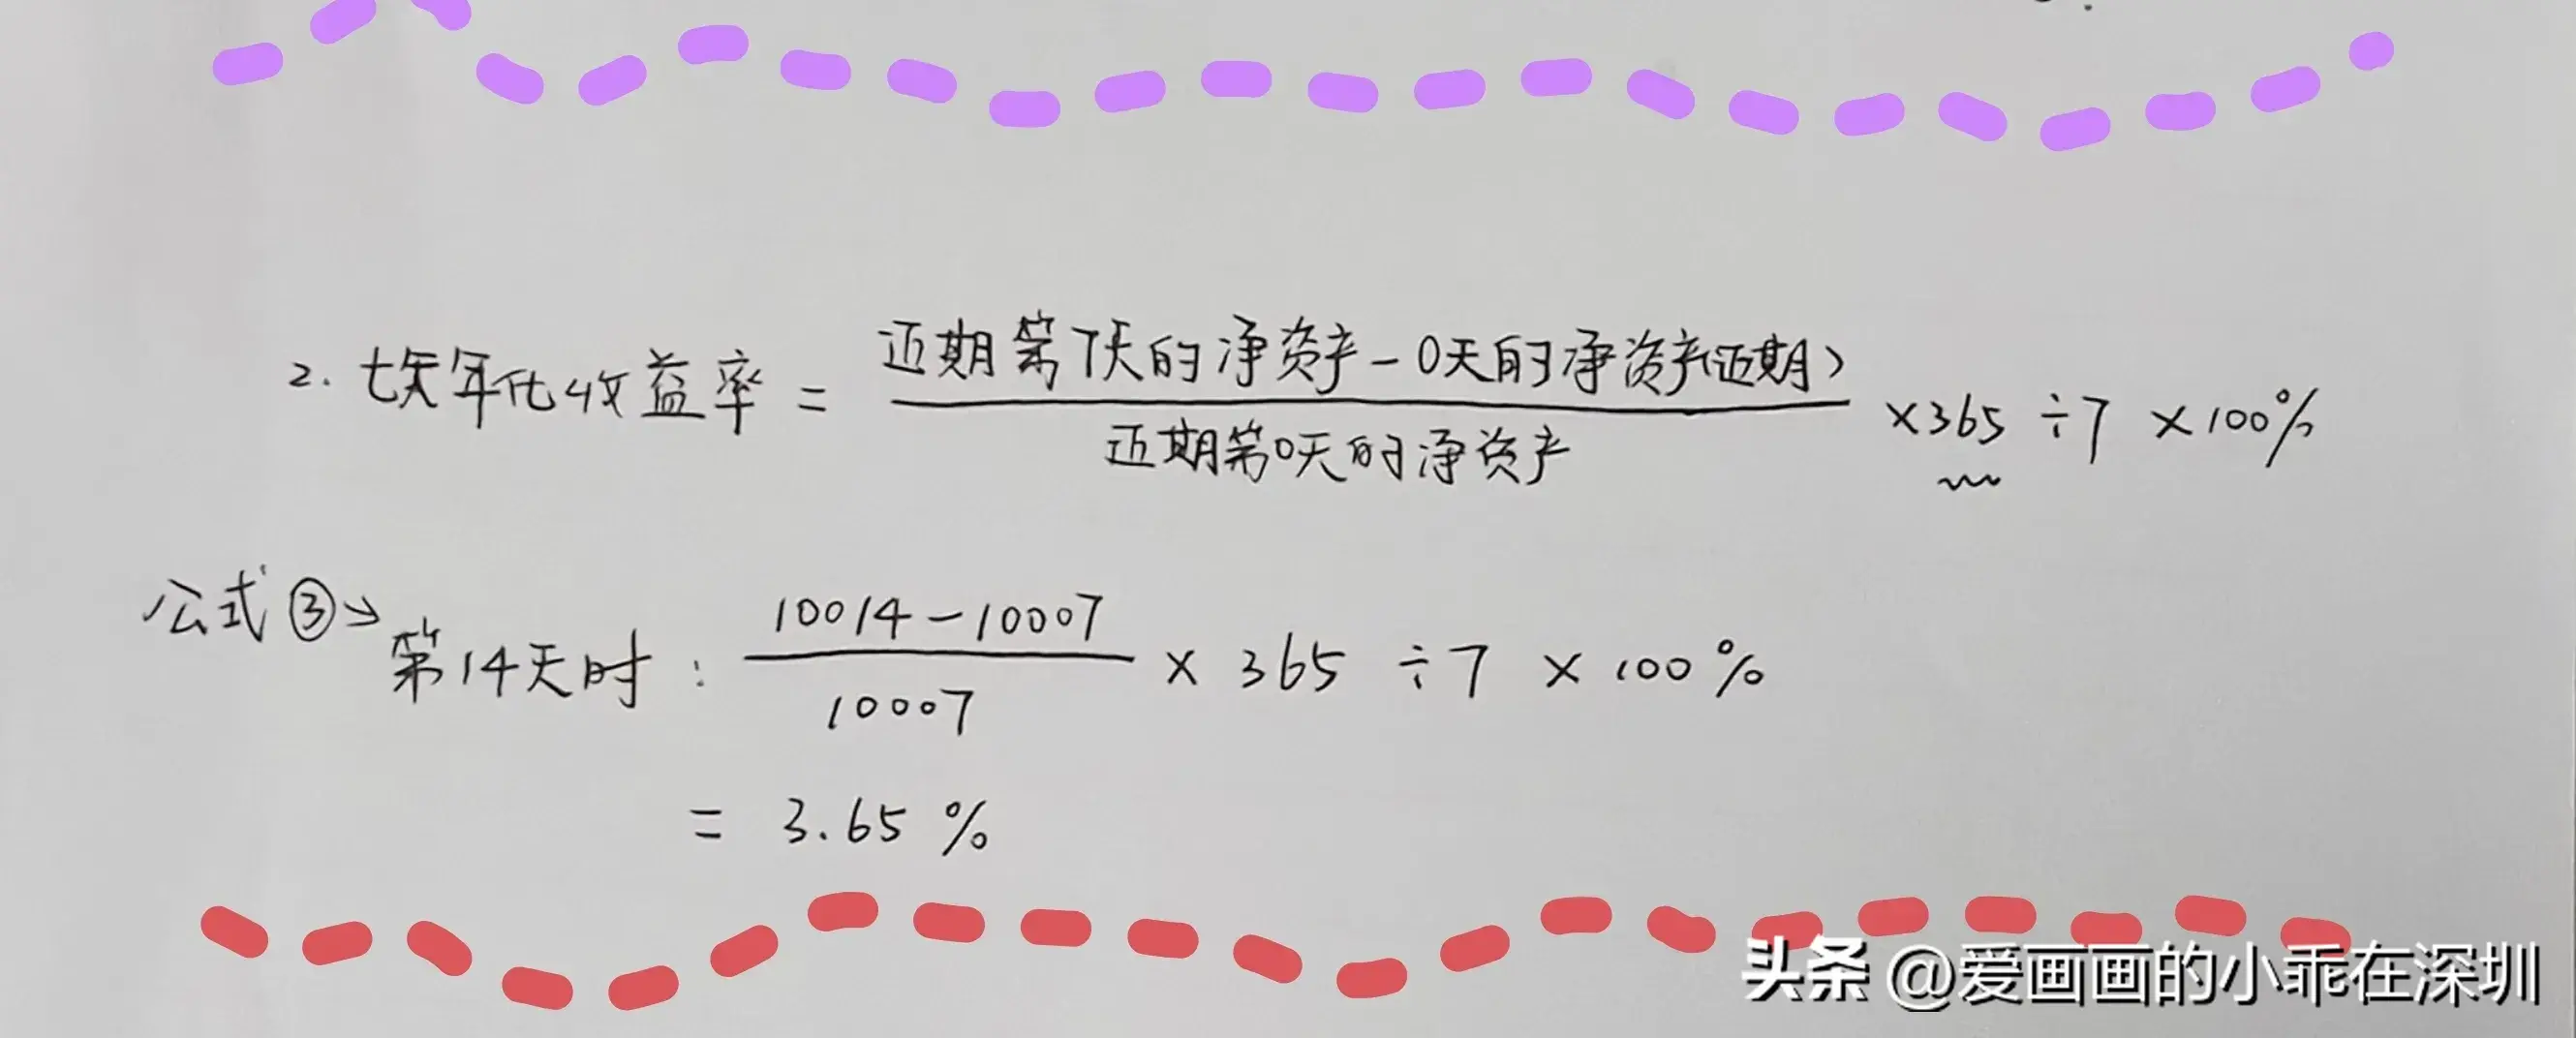 2. 七天年化收益率 = 近期第7天的净资产-0天的净资产(近期) / 近期第0天的净资产 ×365 ÷7 ×100%
公式③→ 第14天时: 10014-10007 / 10007 × 365 ÷7 × 100%
= 3.65 %
头条 @爱画画的小乖在深圳